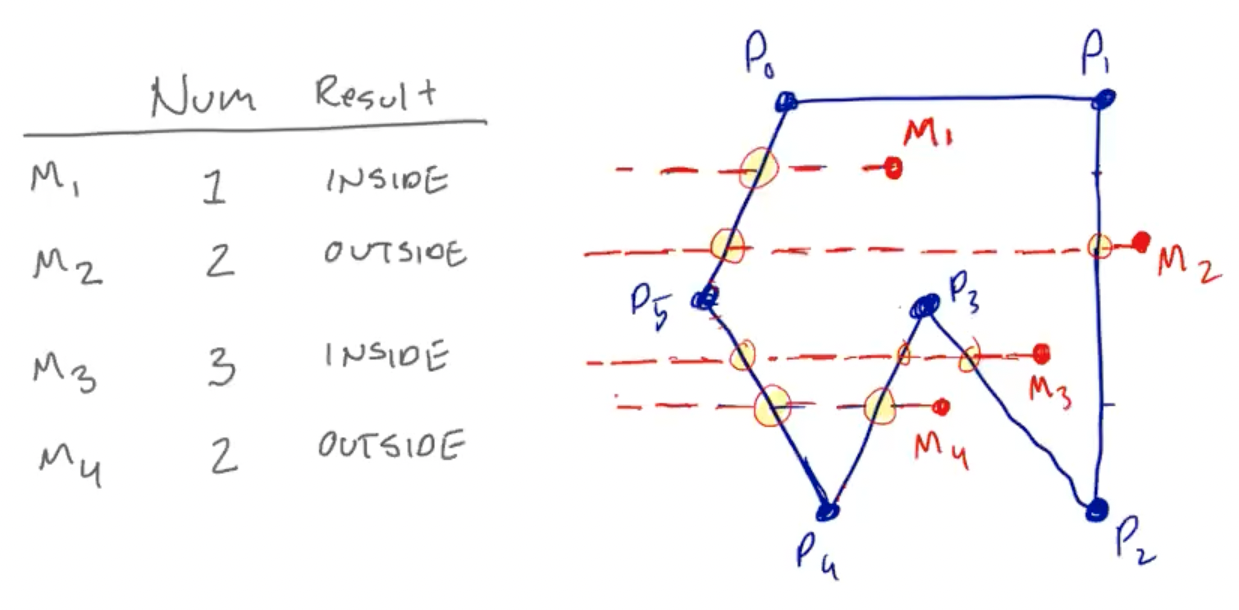 Num Result
M1 1 INSIDE
M2 2 OUTSIDE
M3 3 INSIDE
M4 2 OUTSIDE
P0 P1
M1
M2
P5 P3
M3
M4
P4 P2